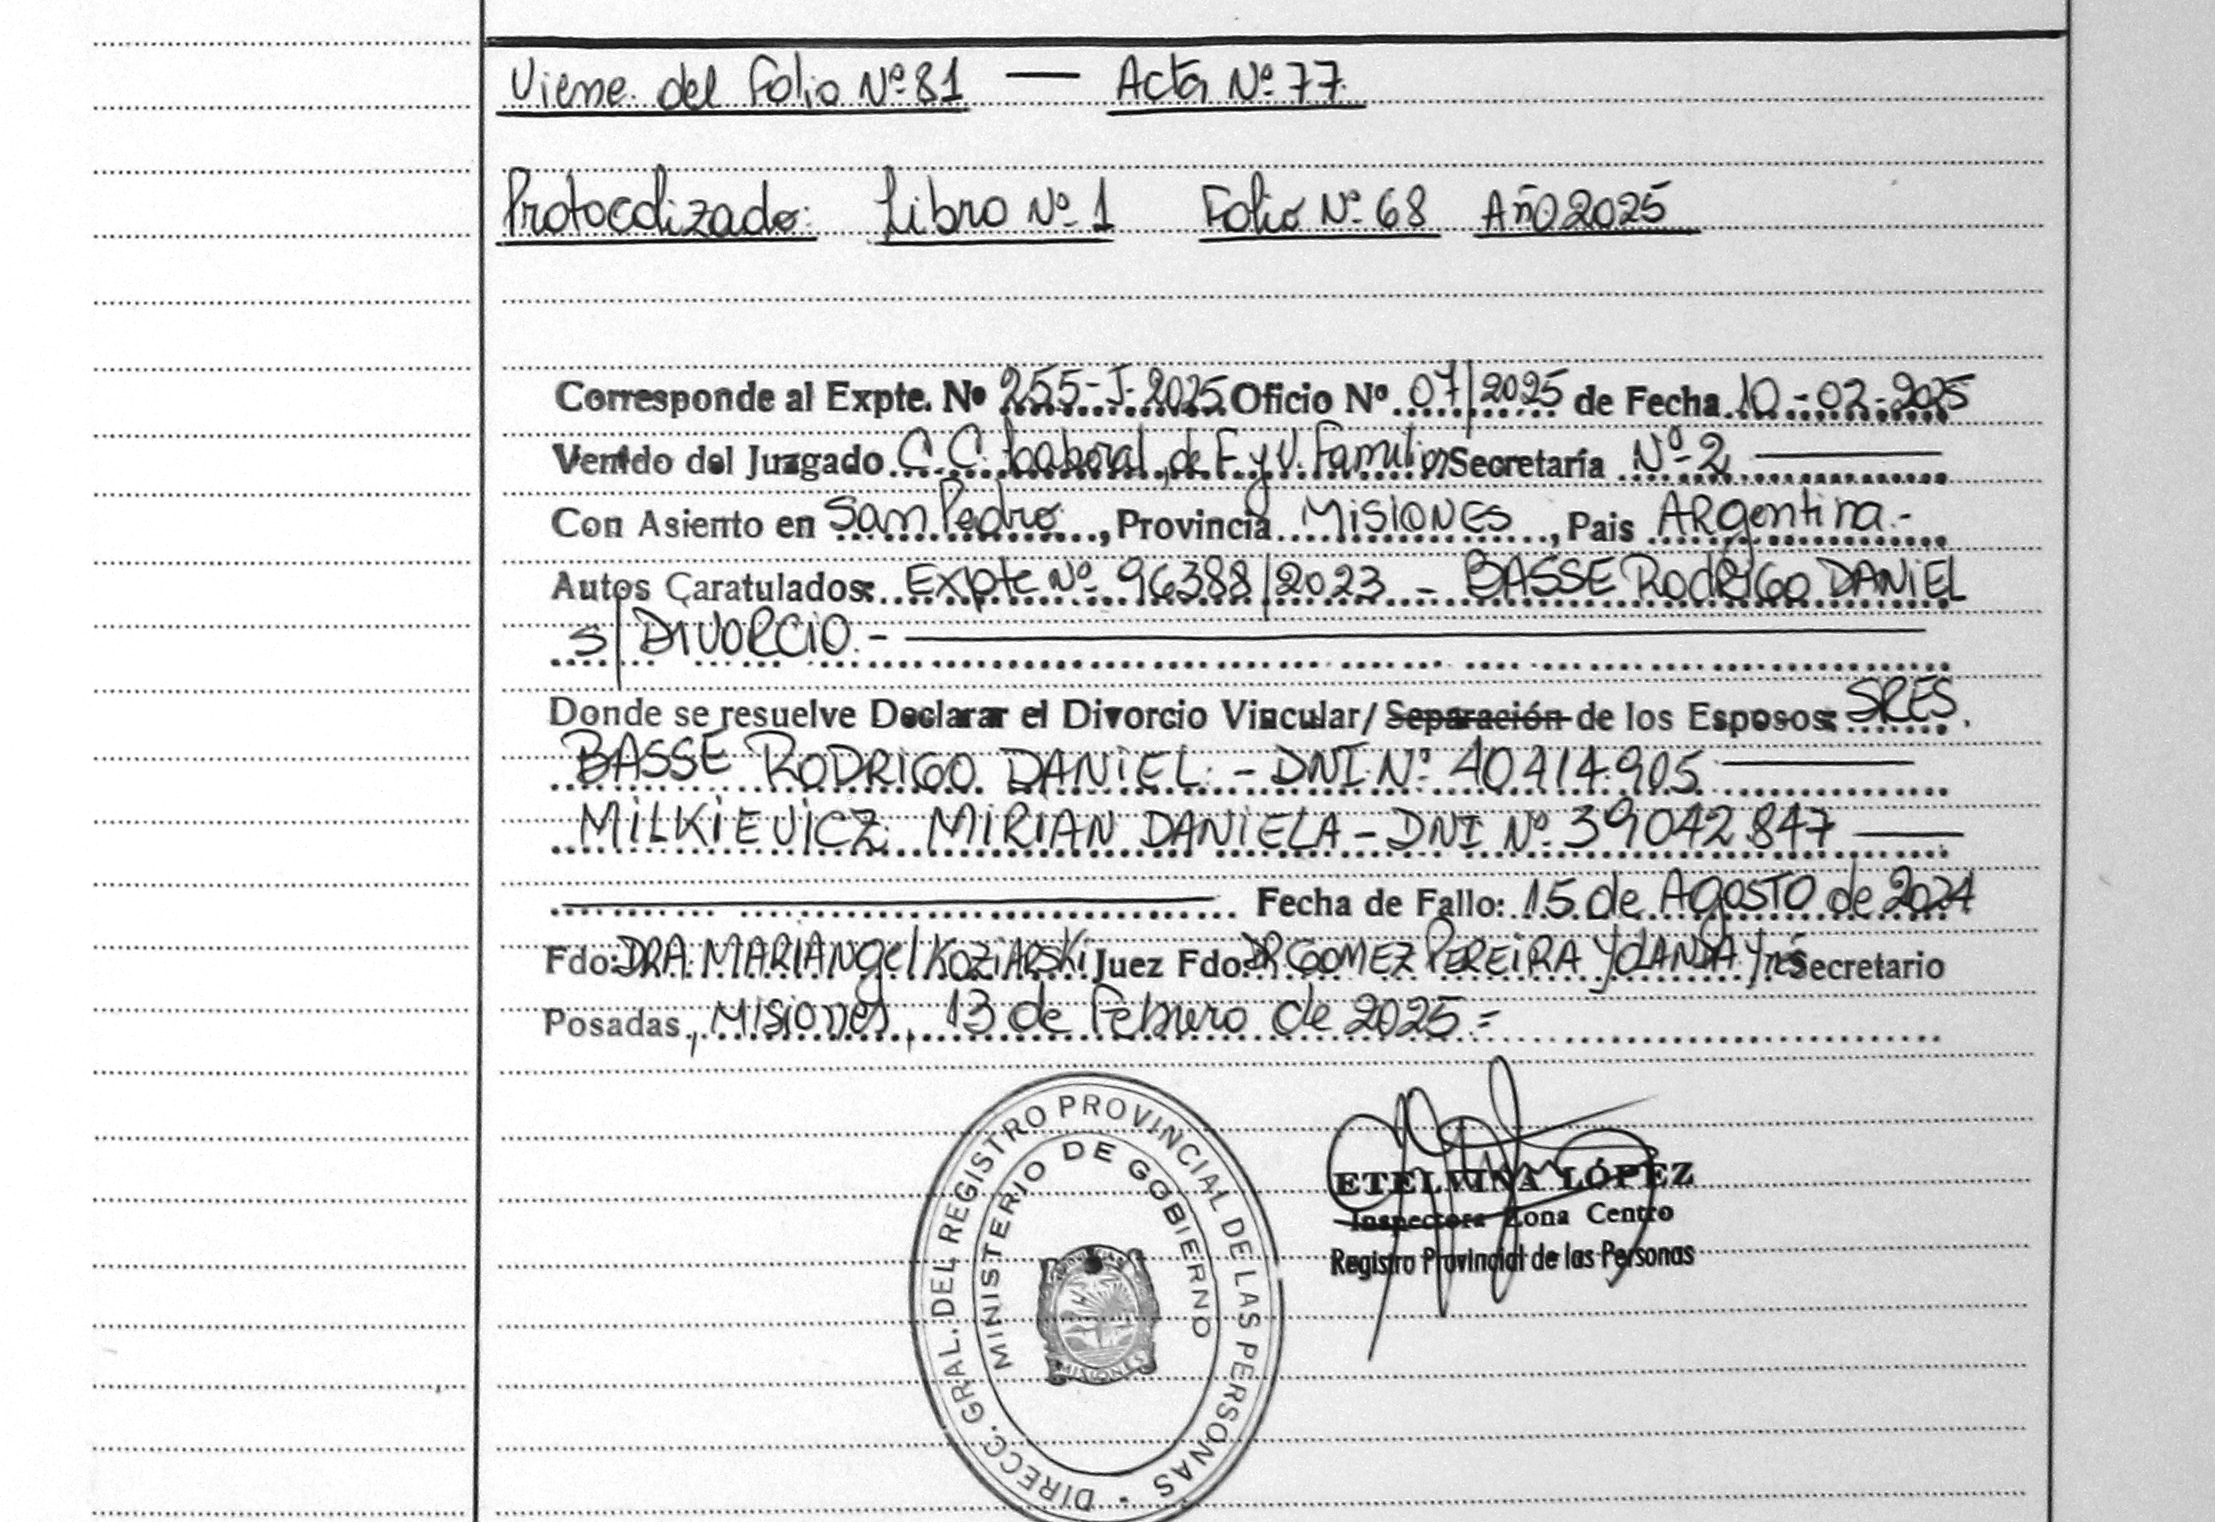 Viene del Folio Nº 81 — Acta Nº 77
Protocolizado: Libro Nº 1 Folio Nº 68 Año 2025
Corresponde al Expte. Nº 255-J-2025 Oficio Nº 07/2025 de Fecha 10-02-2025
Venido del Juzgado C.C. Laboral, de F. y V. Familiar Secretaría Nº 2
Con Asiento en San Pedro, Provincia MISIONES, Pais ARgentina.-
Autos Caratulados: Expte Nº 96388/2023 - BASSE RODRIGO DANIEL
s/ DIVORCIO.-
Donde se resuelve Declarar el Divorcio Vincular/ Separación de los Esposos: SRES.
BASSE RODRIGO DANIEL. - DNI. Nº 40414.905
MILKIEVICZ MIRIAN DANIELA - DNI Nº 39042847
Fecha de Fallo: 15 de AgOSTO de 2024
Fdo: DRA. MARIANgel KOZIARSKI Juez Fdo: DR GOMEZ PEREIRA YOLANDA Ynés Secretario
Posadas, Misiones, 13 de Febrero de 2025.=
DIRECC. GRAL. DEL REGISTRO PROVINCIAL DE LAS PERSONAS
MINISTERIO DE GOBIERNO
MISIONES
ETELVINA LÓPEZ
Inspectora Zona Centro
Registro Provincial de las Personas